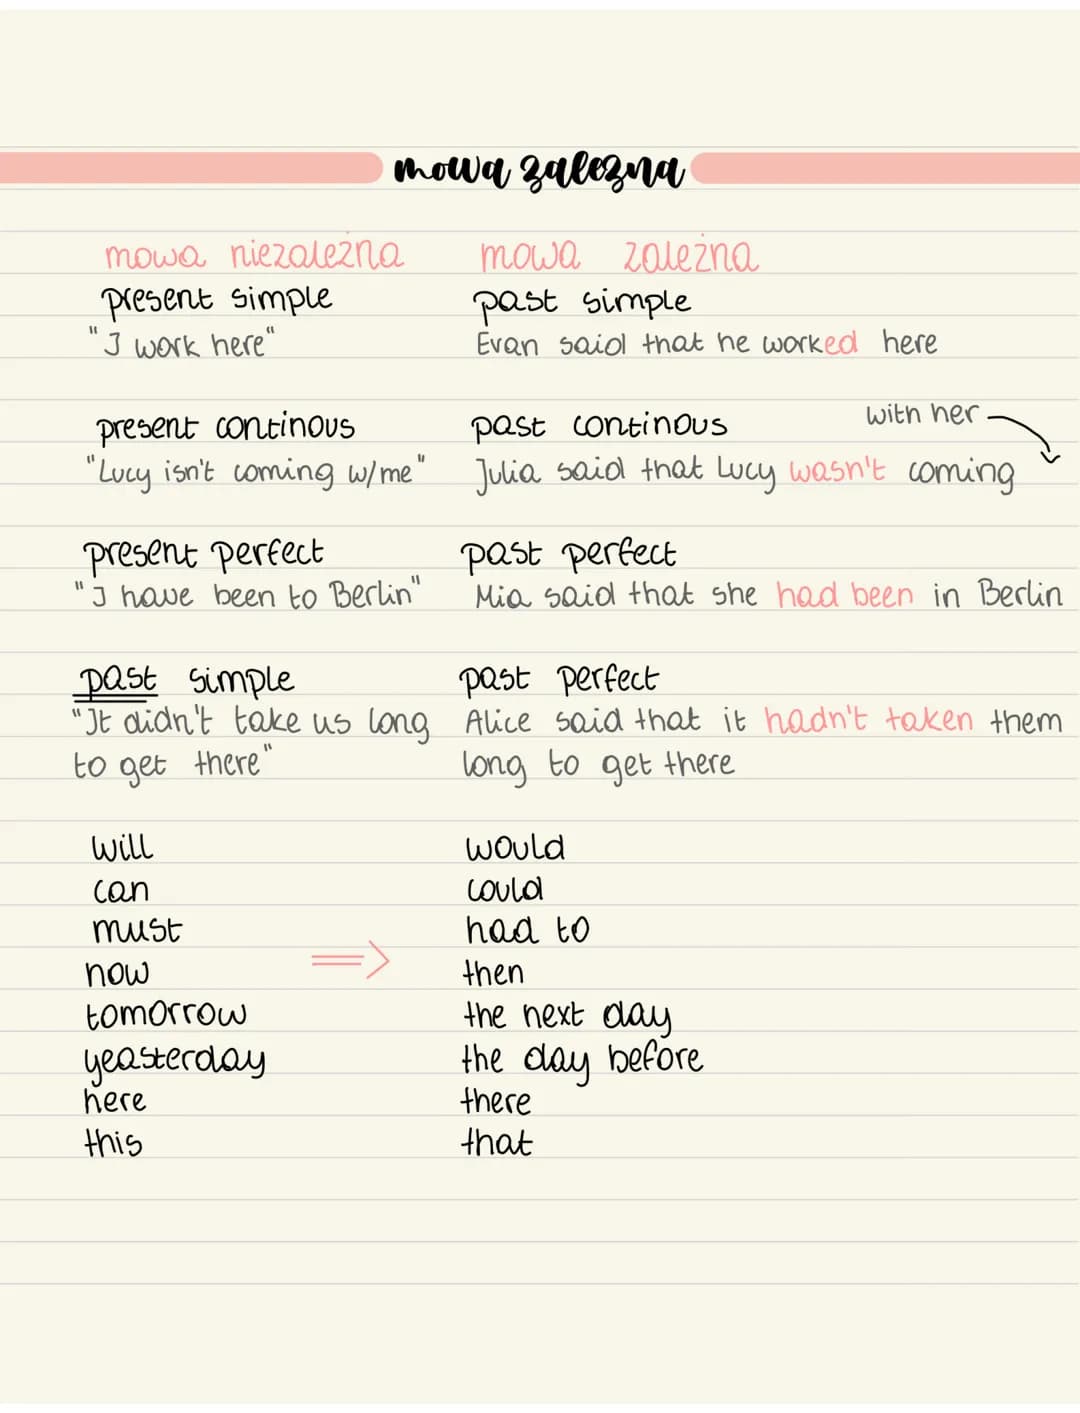 mowa zależna
mowa niezależna mowa zależna
present simple past simple
"I work here" Evan said that he worked here
with her
present continous past continous
"Lucy isn't coming w/me" Julia said that Lucy wasn't coming
present perfect past perfect
"I have been to Berlin" Mia said that she had been in Berlin
past simple past perfect
"It didn't take us long Alice said that it hadn't taken them
to get there" long to get there
will would
can could
must had to
now then
tomorrow the next day
yeasterday the day before
here there
this that